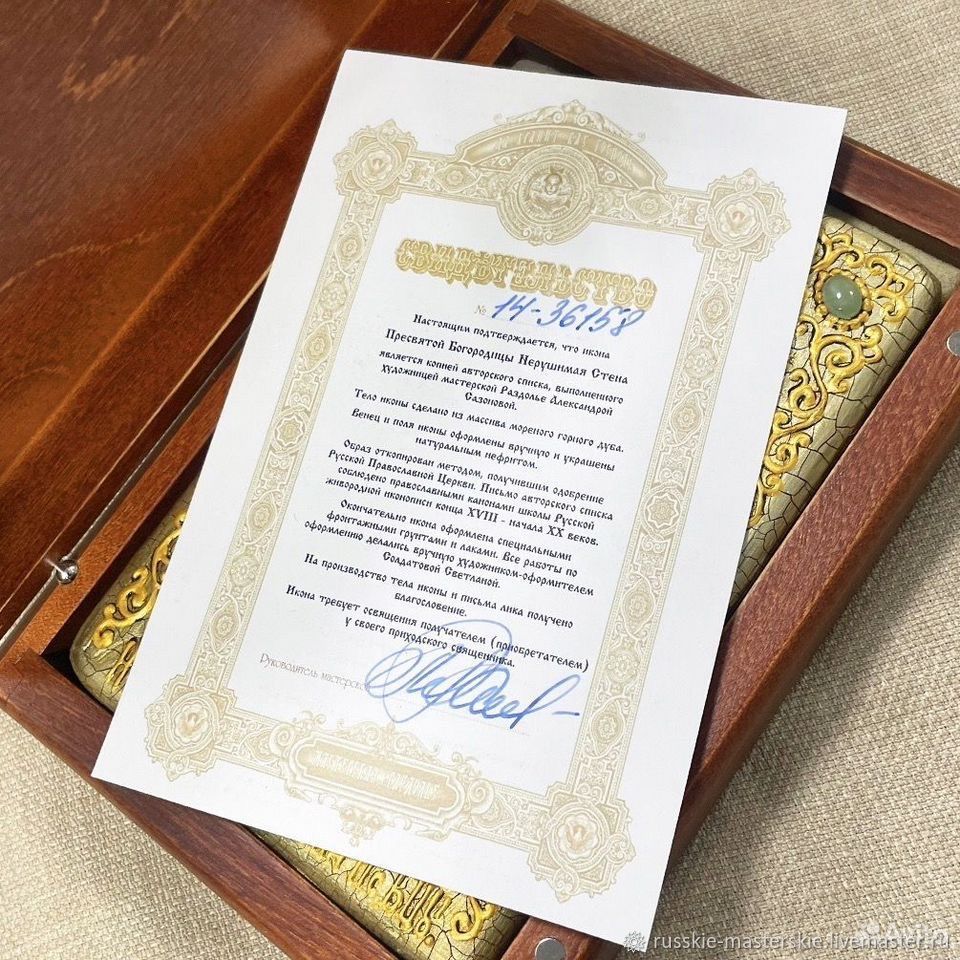 СВИДЕТЕЛЬСТВО
№ 14-36158
Настоящим подтверждается, что икона
Пресвятой Богородицы Нерушимая Стена
является копией авторского списка, выполненного
художницей мастерской Раздолье Александрой
Сазоновой.
Тело иконы сделано из массива мореного горного дуба.
Венец и поля иконы оформлены вручную и украшены
натуральным нефритом.
Образ откопирован методом, получившим одобрение
Русской Православной Церкви. Письмо авторского списка
соблюдено православными канонами школы Русской
живородной иконописи конца XVIII - начала XX веков.
Окончательно икона оформлена специальными
фронтажными грунтами и лаками. Все работы по
оформлению делались вручную художником-оформителем
Солдатовой Светланой.
На производство тела иконы и письма лика получено
благословение.
Икона требует освящения получателем (приобретателем)
у своего приходского священника.
Руководитель мастерской
russkie-masterskie.livemaster.ru
Avito